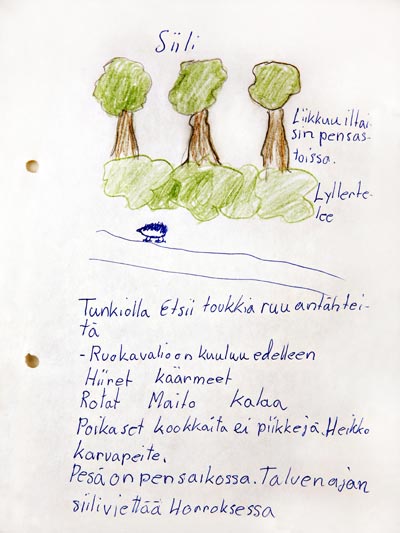 Siili
Liikkuu iltai-
sin pensas-
toissa.
Lyllerte-
lee
Tunkiolla Etsii toukkia ruuantähtei-
tä
- Ruokavalioon kuuluu edelleen
Hiiret käärmeet
Rotat Maito kalaa
Poikaset kookkaita ei piikkejä. Heikko
karvapeite.
Pesä on pensaikossa. Talven ajan
siili viettää Horroksessa